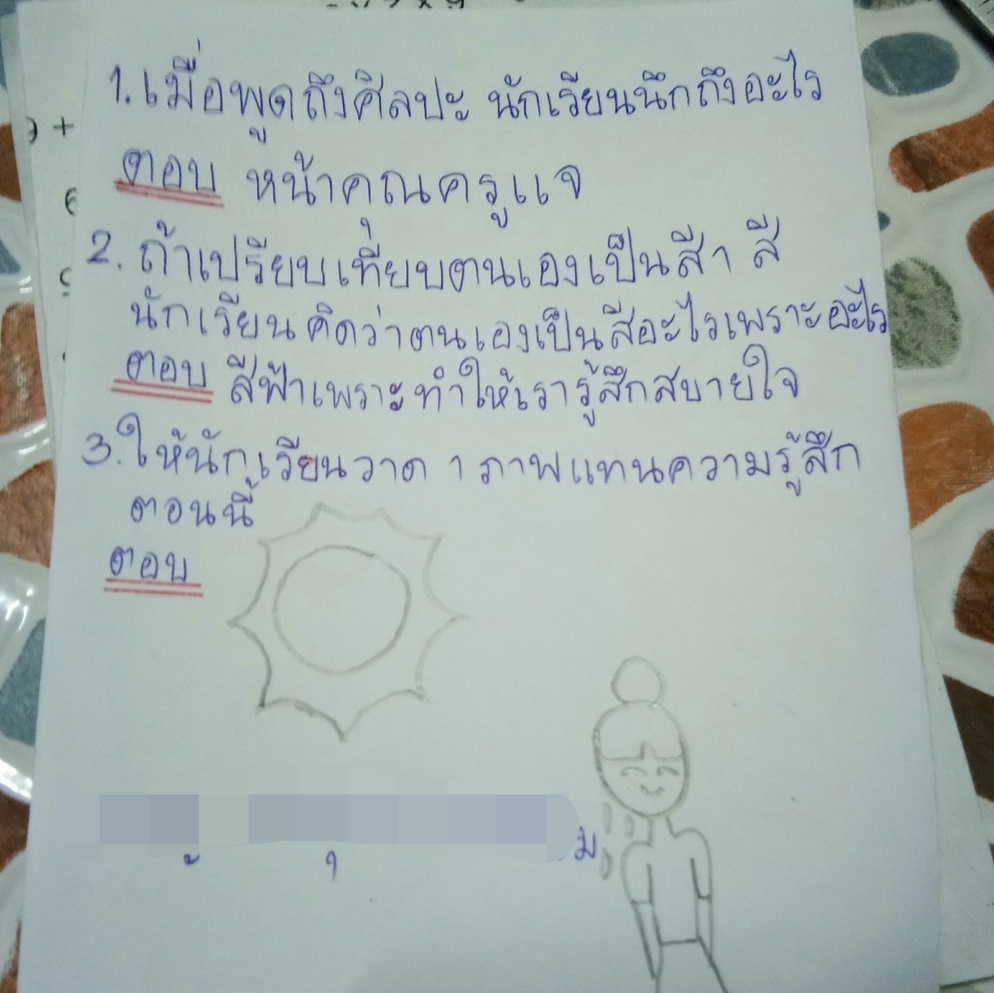 1. เมื่อพูดถึงศิลปะ นักเรียนนึกถึงอะไร
ตอบ หน้าคุณครูแจ
2. ถ้าเปรียบเทียบตนเองเป็นสี 1 สี
นักเรียนคิดว่าตนเองเป็นสีอะไรเพราะอะไร
ตอบ สีฟ้าเพราะทำให้เรารู้สึกสบายใจ
3. ให้นักเรียนวาด 1 ภาพแทนความรู้สึก
ตอนนี้
ตอบ